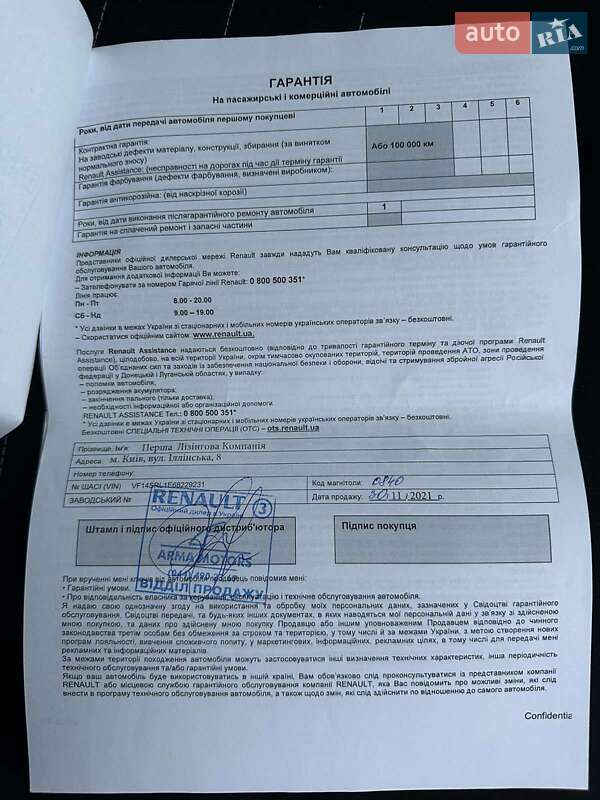 auto RIA.com
ГАРАНТІЯ
На пасажирські і комерційні автомобілі
Роки, від дати передачі автомобіля першому покупцеві 1 2 3 4 5 6
Контрактна гарантія:
На заводські дефекти матеріалу, конструкції, збирання (за винятком
нормального зносу) Або 100 000 км
Renault Assistance: (несправності на дорогах під час дії терміну гарантії
Гарантія фарбування (дефекти фарбування, визначені виробником):
Гарантія антикорозійна: (від наскрізної корозії)
Роки, від дати виконання післягарантійного ремонту автомобіля 1
Гарантія на сплачений ремонт і запасні частини
ІНФОРМАЦІЯ
Представники офіційної дилерської мережі Renault завжди нададуть Вам кваліфіковану консультацію щодо умов гарантійного
обслуговування Вашого автомобіля.
Для отримання додаткової інформації Ви можете:
– Зателефонувати за номером Гарячої лінії Renault: 0 800 500 351*
Лінія працює:
Пн - Пт 8.00 - 20.00
Сб - Нд 9.00 – 19.00
* Усі дзвінки в межах України зі стаціонарних і мобільних номерів українських операторів зв'язку – безкоштовні.
– Скористатися офіційним сайтом: www.renault.ua.
Послуги Renault Assistance надаються безкоштовно (відповідно до тривалості гарантійного терміну та діючої програми Renault
Assistance), цілодобово, на всій території України, окрім тимчасово окупованих територій, територій проведення АТО, зони проведення
операції Об'єднаних сил та заходів із забезпечення національної безпеки і оборони, відсічі та стримування збройної агресії Російської
федерації у Донецькій і Луганській областях, у випадку:
– поломки автомобіля,
– розрядження акумулятора;
– закінчення пального (тільки доставка);
– необхідності інформаційної або організаційної допомоги.
RENAULT ASSISTANCE Тел.: 0 800 500 351*
* Усі дзвінки в межах України зі стаціонарних і мобільних номерів українських операторів зв'язку – безкоштовні.
Безкоштовні СПЕЦІАЛЬНІ ТЕХНІЧНІ ОПЕРАЦІЇ (ОТС) – ots.renault.ua
Прізвище, Ім'я: Перша Лізингова Компанія
Адреса м. Київ, вул. Іллінська, 8
Номер телефону:
№ ШАСІ (VIN) VF14SRL1E68229231 Код магнітоли: 0840
ЗАВОДСЬКИЙ № Дата продажу: 30.11.2021 р.
RENAULT 3
Офіційний дилер в Україні
Штамп і підпис офіційного дистриб'ютора Підпис покупця
ARMA MOTORS
ВІДДІЛ ПРОДАЖУ
При врученні мені ключів від автомобіля продавець повідомив мені:
• Гарантійні умови.
• Про відповідальність власника за керування, експлуатацію і технічне обслуговування автомобіля.
Я надаю свою однозначну згоду на використання та обробку моїх персональних даних, зазначених у Свідоцтві гарантійного
обслуговування, Свідоцтві передачі, та будь-яких інших документах, в яких наводяться мої персональні дані у зв'язку зі здійсненою
мною покупкою, та даних про здійснену мною покупку Продавцю або іншим уповноваженим Продавцем відповідно до чинного
законодавства третім особам без обмеження за строком та територією, у тому числі й за межами України, з метою створення нових
програм лояльності, вивчення споживчого попиту, у маркетингових, інформаційних, рекламних цілях, в тому числі для передачі мені
рекламних та інформаційних матеріалів.
За межами території походження автомобіля можуть застосовуватися інші визначення технічних характеристик, інша періодичність
технічного обслуговування та/або гарантійні умови.
Якщо ваш автомобіль буде використовуватись в іншій країні, Вам обов'язково слід проконсультуватися із представником компанії
RENAULT або місцевою службою гарантійного обслуговування компанії RENAULT, яка Вас повідомить про можливі зміни, які слід
внести в програму технічного обслуговування автомобіля, а також щодо змін, які слід здійснити по відношенню до самого автомобіля.
Confidentia